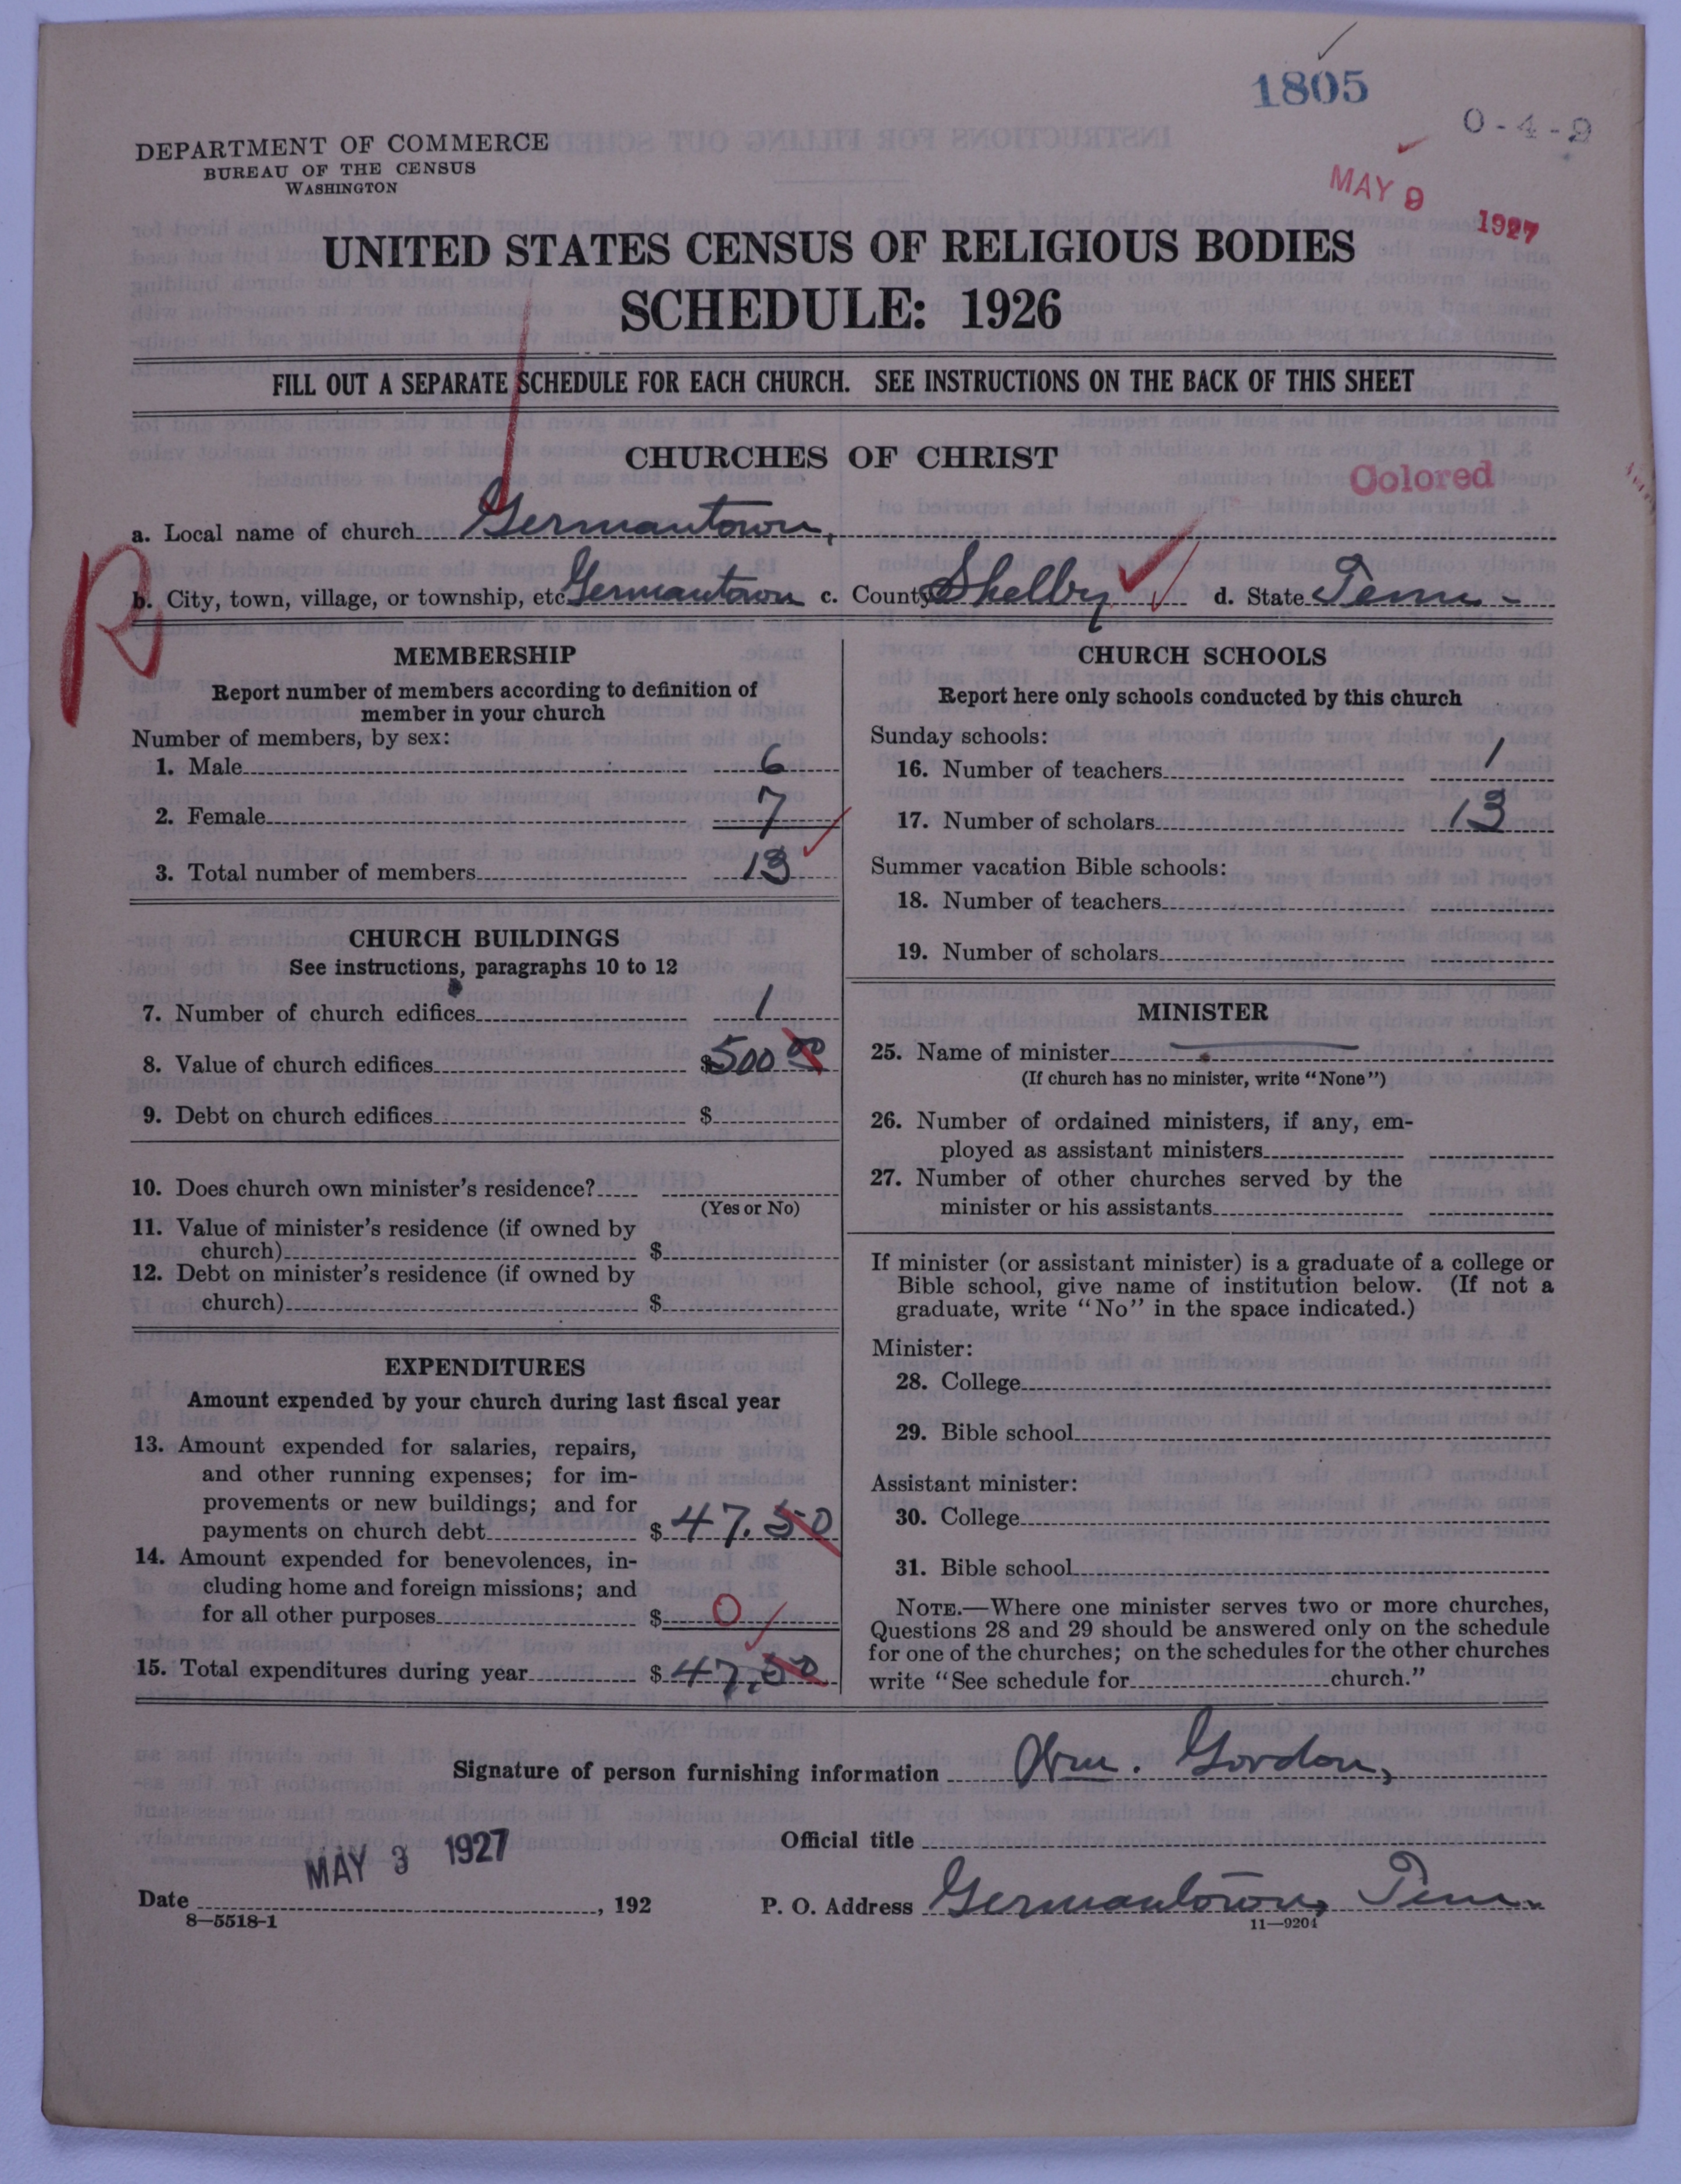 1805
0-4-9
MAY 9 1927
DEPARTMENT OF COMMERCE
BUREAU OF THE CENSUS
WASHINGTON
UNITED STATES CENSUS OF RELIGIOUS BODIES
SCHEDULE: 1926
FILL OUT A SEPARATE SCHEDULE FOR EACH CHURCH. SEE INSTRUCTIONS ON THE BACK OF THIS SHEET
CHURCHES OF CHRIST
Colored
a. Local name of church Germantown,
R
b. City, town, village, or township, etc Germantown c. County Shelby d. State Tenn -
MEMBERSHIP
Report number of members according to definition of
member in your church
Number of members, by sex:
1. Male 6
2. Female 7
3. Total number of members 13
CHURCH BUILDINGS
See instructions, paragraphs 10 to 12
7. Number of church edifices 1
8. Value of church edifices $500 00
9. Debt on church edifices $
10. Does church own minister's residence?
(Yes or No)
11. Value of minister's residence (if owned by
church) $
12. Debt on minister's residence (if owned by
church) $
EXPENDITURES
Amount expended by your church during last fiscal year
13. Amount expended for salaries, repairs,
and other running expenses; for im-
provements or new buildings; and for
payments on church debt $ 47.50
14. Amount expended for benevolences, in-
cluding home and foreign missions; and
for all other purposes $ 0
15. Total expenditures during year $ 47.50
CHURCH SCHOOLS
Report here only schools conducted by this church
Sunday schools:
16. Number of teachers 1
17. Number of scholars 13
Summer vacation Bible schools:
18. Number of teachers
19. Number of scholars
MINISTER
25. Name of minister
(If church has no minister, write "None")
26. Number of ordained ministers, if any, em-
ployed as assistant ministers
27. Number of other churches served by the
minister or his assistants
If minister (or assistant minister) is a graduate of a college or
Bible school, give name of institution below. (If not a
graduate, write "No" in the space indicated.)
Minister:
28. College
29. Bible school
Assistant minister:
30. College
31. Bible school
NOTE.—Where one minister serves two or more churches,
Questions 28 and 29 should be answered only on the schedule
for one of the churches; on the schedules for the other churches
write "See schedule for church."
Signature of person furnishing information Wm. Gordon,
Official title
MAY 3 1927
Date , 192
P. O. Address Germantown, Tenn.
8—5518-1
11—9204